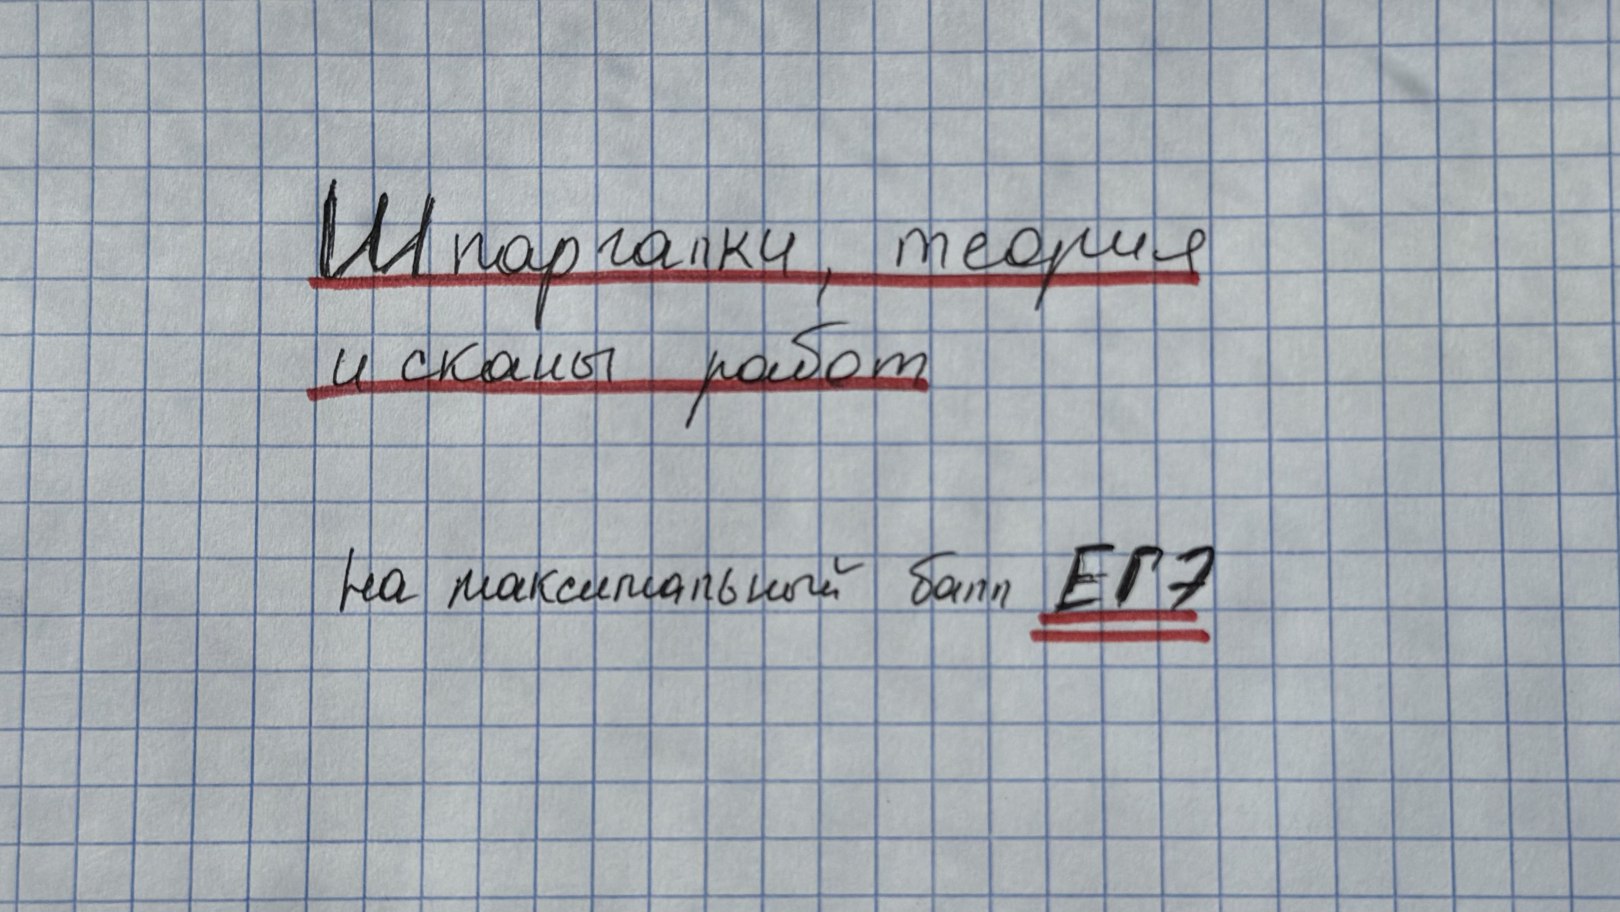 Шпаргалки, теория
и сканы работ
на максимальный балл ЕГЭ